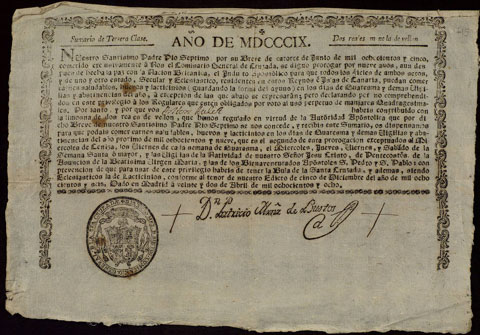 Sumario de Tercera Clase.
AÑO DE MDCCCIX.
Dos reales y medio de vellon.
Nuestro Santisimo Padre Pio Septimo por su Breve de catorce de Junio de mil ochocientos y cinco,
cometido exclusivamente á Nos el Comisario General de Cruzada, se dignó prorogar por nueve años, aun des-
pues de hecha la paz con la Nacion Británica, el Indulto Apostólico para que todos los fieles de ambos sexos,
y de uno y otro estado, Secular y Eclesiástico, residentes en estos Reynos é Islas de Canaria, puedan comer
carnes saludables, huevos y lacticinios; guardando la forma del ayuno en los dias de Quaresma y demas Vigi-
lias y abstinencias del año, á excepcion de las que abaxo se expresarán; pero declarando no ser comprehendi-
dos en este privilegio á los Regulares que esten obligados por voto al uso perpetuo de manjares Quadragesima-
les. Por tanto, y por que vos habeis contribuido con
la limosna de dos reales de vellon, que hemos regulado en virtud de la Autoridad Apostólica que por di-
cho Breve nuestro Santisimo Padre Pio Septimo se nos concede, y recibis este Sumario, os dispensamos
para que podais comer carnes saludables, huevos y lacticinios en los dias de Quaresma y demas Vigilias y abs-
tinencias del año proximo de mil ochocientos y nueve, que es el segundo de esta prorogacion exceptuados el Miér-
coles de Ceniza, los Viernes de cada semana de Quaresma, el Miércoles, Jueves, Viernes, y Sábado de la
Semana Santa ó mayor, y las Vigilias de la Natividad de nuestro Señor Jesu Cristo, de Pentecostés, de la
Asuncion de la Beatísima Virgen María, y la de los Bienaventurados Apóstoles S. Pedro y S. Pablo: con
prevencion de que para usar de este privilegio habeis de tener la Bula de la Santa Cruzada, y ademas, siendo
Eclesiásticos la de Lacticinios, conforme al tenor de nuestro Edicto de cinco de Diciembre del año de mil ocho
cientos y seis. Dado en Madrid á veinte y dos de Abril de mil ochocientos y ocho.
Dn. Patricio Martnz. de Bustos